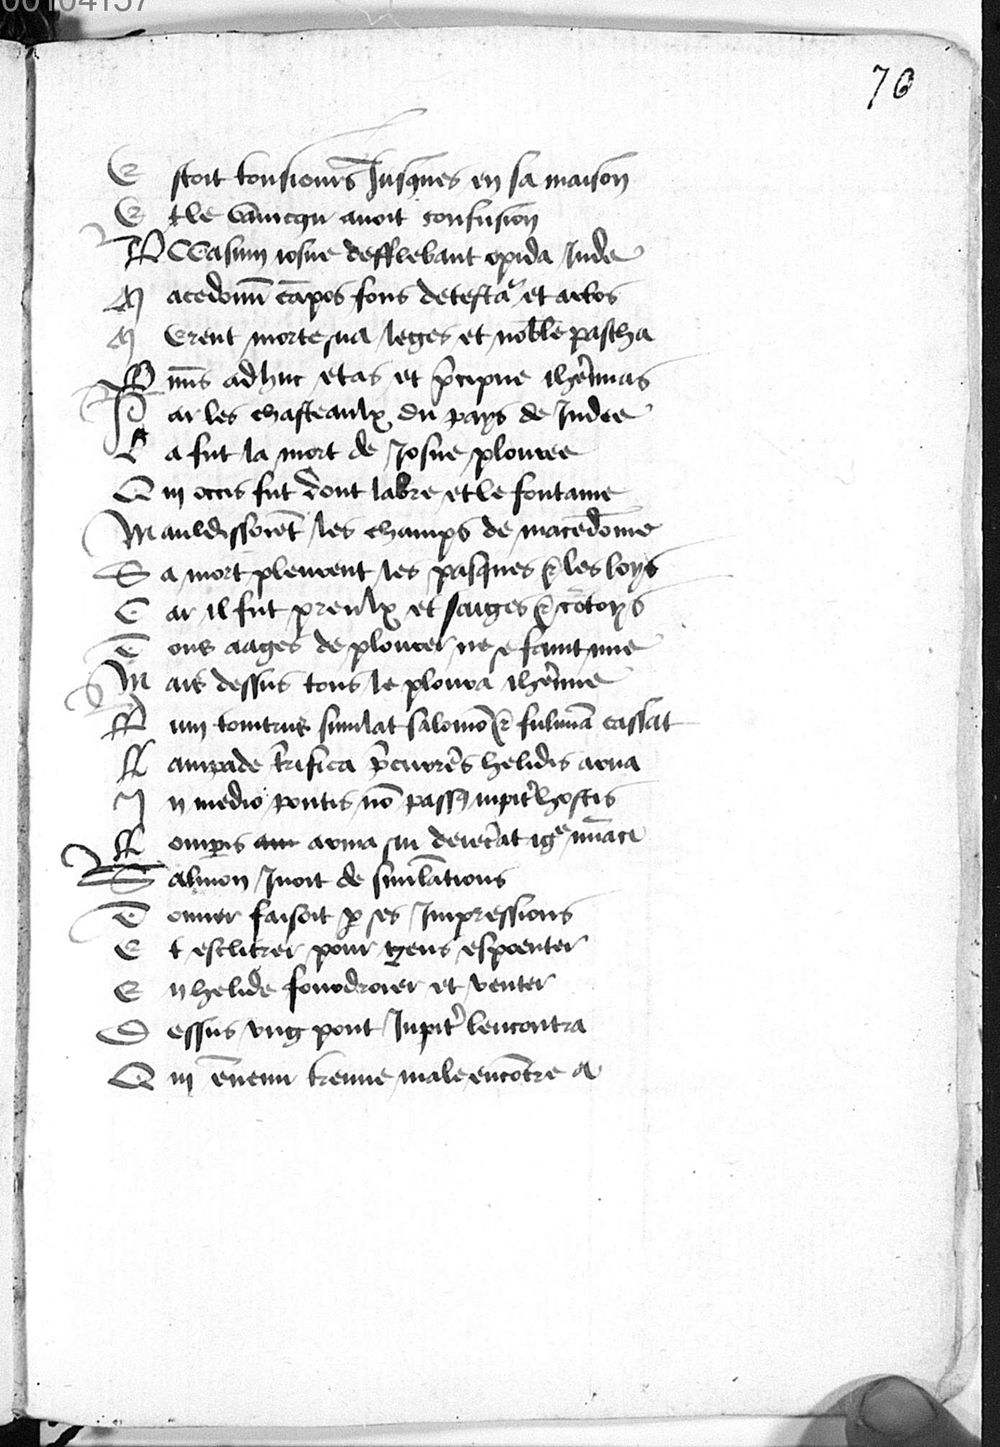 00104157
70
E stoit tousiours Jusques en sa maison
E t le vaincqu auoit confusion
Occasum iosue defflebant opida Jude
M acedonu campos fons detesta et arbos
M erent morte sua leges et noble pascha
O mnis adhuc etas et precipue iheremias
P ar les chasteaulx du pays de Judee
L a fut la mort de Josue plouree
Q ui occis fut dont labre et le fontaine
M auldissoient les champs de macedoine
S a mort pleurent les pasques & les loys
C ar il fut preulx et saiges & cortoys
T ous aages de plourer ne se faint mie
M ais dessus tous le ploura iheremie
D um tonitrus simulat salomon & fulmina cassat
L ampade terrifica percurrens helidis arua
I n medio pontis non passus iupiter hostis
R omperis arma sui deiecerat igne minaci
S almon Juoit de simulations
T onner faisoit par ses Impressions
E t esclitrer pour gens espoenter
E n helide fouodroier et venter
D essus vng pont Jupiter lencontra
Q ui ennemi tenue male encontre a